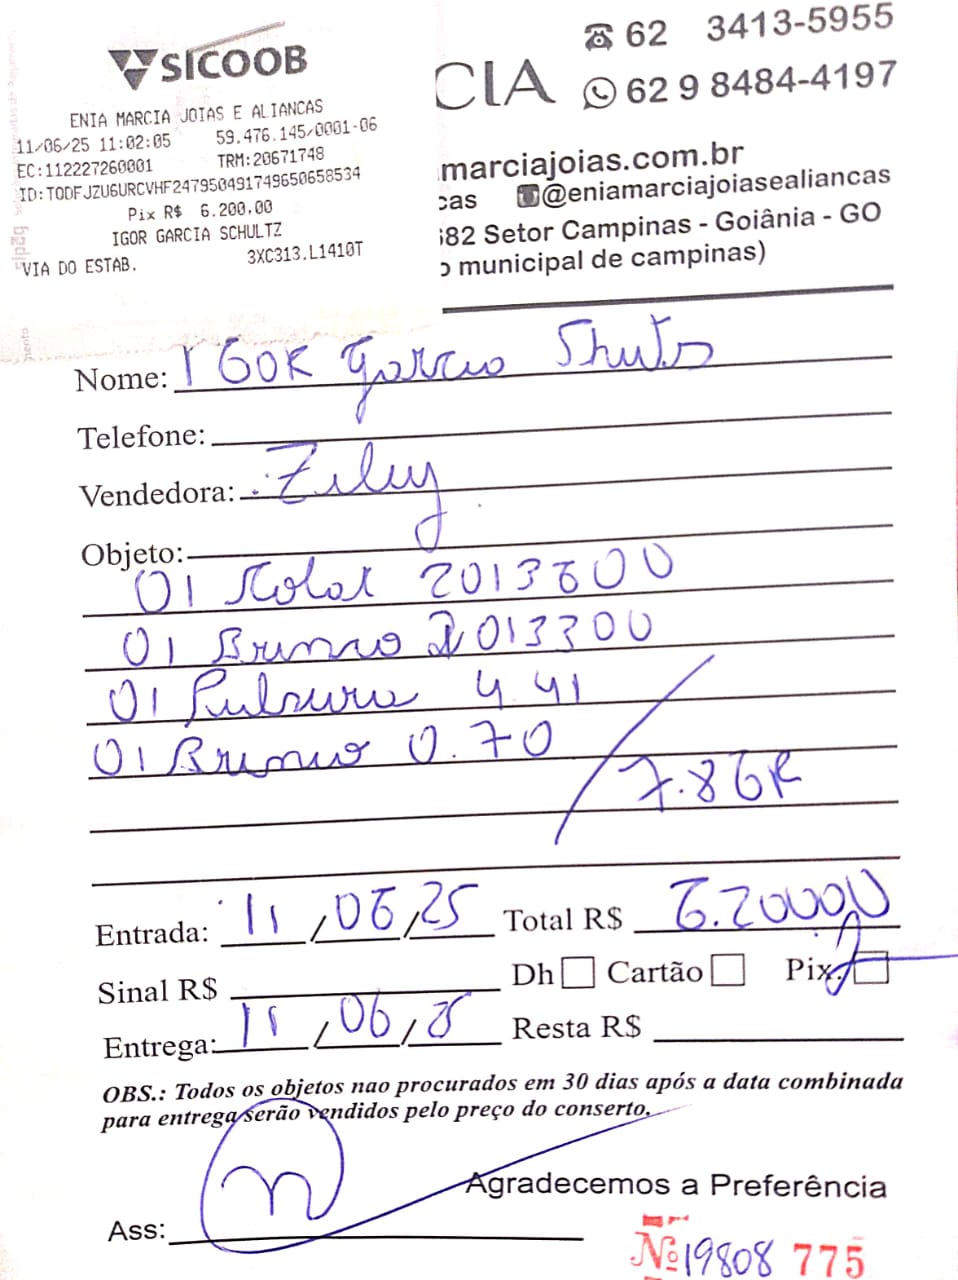 SICOOB
ENIA MARCIA JOIAS E ALIANCAS
11/06/25 11:02:05 59.476.145/0001-06
EC:112227260001 TRM:20671748
ID:TODFJZU6URCVHF247950491749650658534
Pix R$ 6.200,00
IGOR GARCIA SCHULTZ
VIA DO ESTAB. 3XC313.L1410T
62 3413-5955
CIA 62 9 8484-4197
marciajoias.com.br
cas @eniamarciajoiasealiancas
682 Setor Campinas - Goiânia - GO
o municipal de campinas)
Nome: IGOR Garcia Shuts
Telefone:
Vendedora: Ziley
Objeto:
01 Kolar 2013600
01 Brinco 2013300
01 Pulseira 4.41
01 Brinco 0.70
7.8GR
Entrada: 11/06/25 Total R$ 6.20000
Sinal R$ Dh Cartão Pix
Entrega: 11/06/25 Resta R$
OBS.: Todos os objetos nao procurados em 30 dias após a data combinada
para entrega serão vendidos pelo preço do conserto.
Agradecemos a Preferência
Ass:
Nº 19808 775